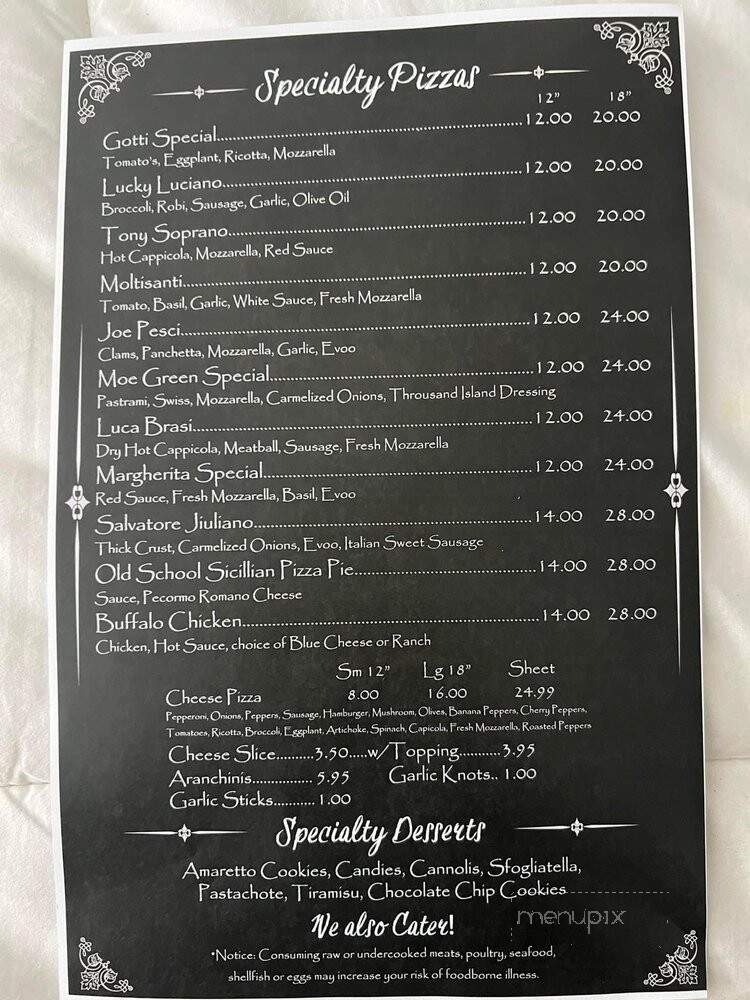 Specialty Pizzas
12" 18"
Gotti Special 12.00 20.00
Tomato's, Eggplant, Ricotta, Mozzarella
Lucky Luciano 12.00 20.00
Broccoli, Robi, Sausage, Garlic, Olive Oil
Tony Soprano 12.00 20.00
Hot Cappicola, Mozzarella, Red Sauce
Moltisanti 12.00 20.00
Tomato, Basil, Garlic, White Sauce, Fresh Mozzarella
Joe Pesci 12.00 24.00
Clams, Panchetta, Mozzarella, Garlic, Evoo
Moe Green Special 12.00 24.00
Pastrami, Swiss, Mozzarella, Carmelized Onions, Throusand Island Dressing
Luca Brasi 12.00 24.00
Dry Hot Cappicola, Meatball, Sausage, Fresh Mozzarella
Margherita Special 12.00 24.00
Red Sauce, Fresh Mozzarella, Basil, Evoo
Salvatore Jiuliano 14.00 28.00
Thick Crust, Carmelized Onions, Evoo, Italian Sweet Sausage
Old School Sicillian Pizza Pie 14.00 28.00
Sauce, Pecormo Romano Cheese
Buffalo Chicken 14.00 28.00
Chicken, Hot Sauce, choice of Blue Cheese or Ranch
Sm 12" Lg 18" Sheet
Cheese Pizza 8.00 16.00 24.99
Pepperoni, Onions, Peppers, Sausage, Hamburger, Mushroom, Olives, Banana Peppers, Cherry Peppers,
Tomatoes, Ricotta, Broccoli, Eggplant, Artichoke, Spinach, Capicola, Fresh Mozzarella, Roasted Peppers
Cheese Slice..........3.50.....w/Topping...........3.95
Aranchinis............... 5.95 Garlic Knots.. 1.00
Garlic Sticks........... 1.00
Specialty Desserts
Amaretto Cookies, Candies, Cannolis, Sfogliatella,
Pastachote, Tiramisu, Chocolate Chip Cookies
menupix
We also Cater!
*Notice: Consuming raw or undercooked meats, poultry, seafood,
shellfish or eggs may increase your risk of foodborne illness.